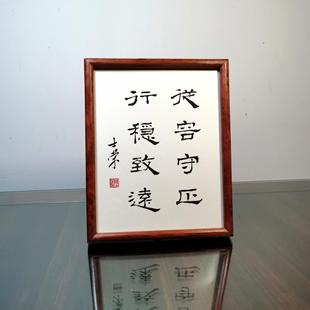 從容守正
行穩致遠
士榮